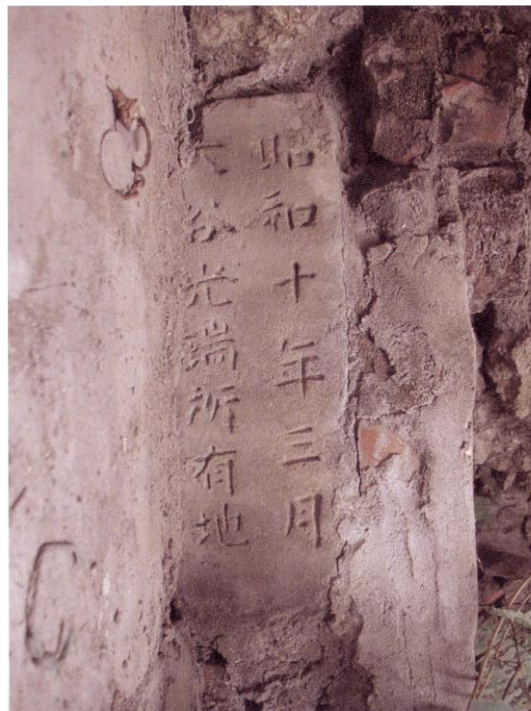 昭和十年三月
大谷光瑞所有地